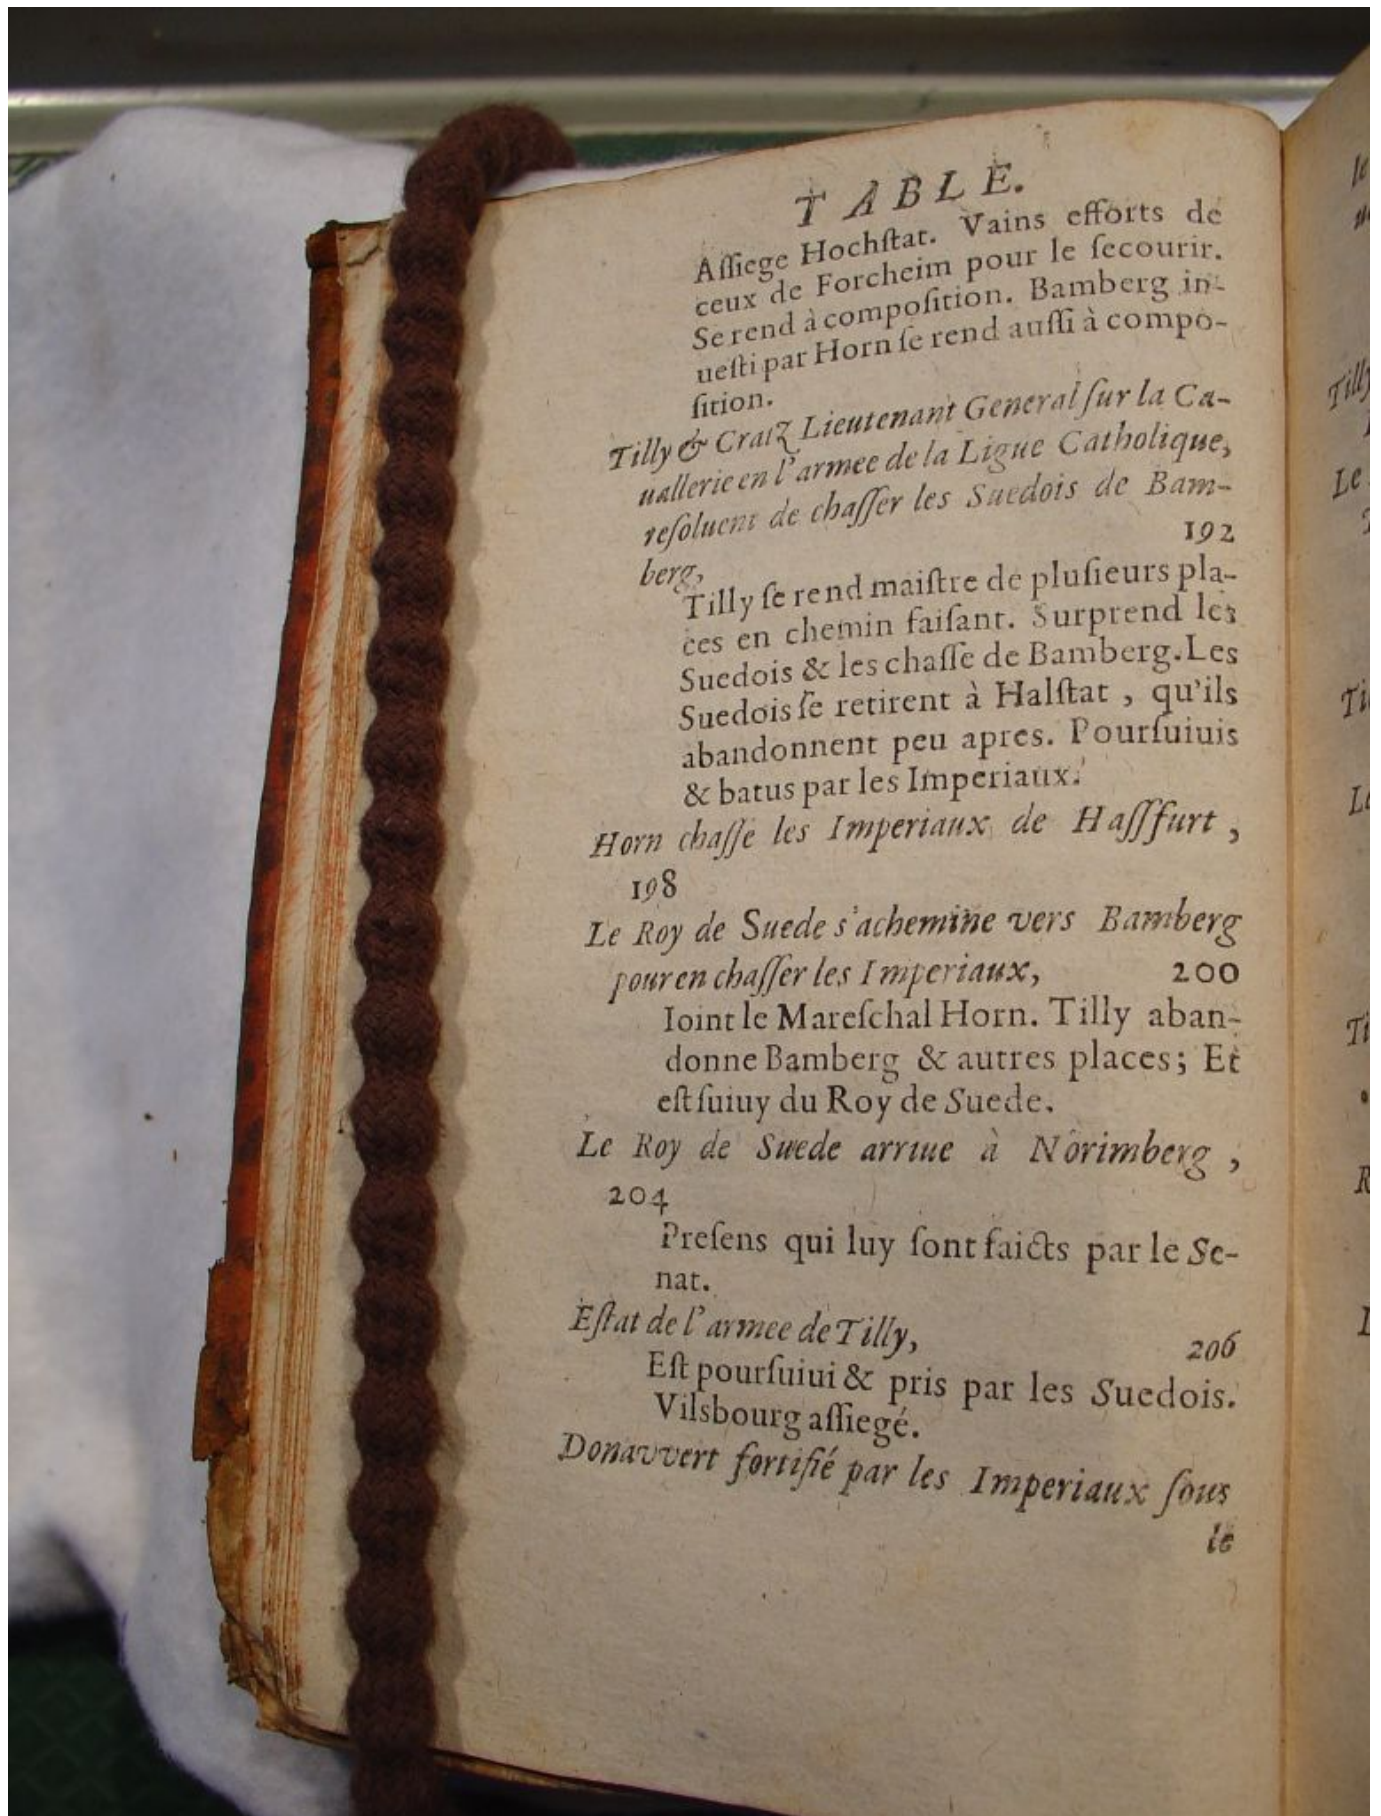 TABLE.
Aſſiege Hochſtat. Vains efforts de
ceux de Forcheim pour le ſecourir.
Se rend à compoſition. Bamberg in-
ueſti par Horn ſe rend auſſi à compo-
ſition.
Tilly & Cratz Lieutenant General ſur la Ca-
uallerie en l'armee de la Ligue Catholique,
reſoluent de chaſſer les Suedois de Bam-
berg, 192
Tilly ſe rend maiſtre de pluſieurs pla-
ces en chemin faiſant. Surprend les
Suedois & les chaſſe de Bamberg. Les
Suedois ſe retirent à Halſtat , qu'ils
abandonnent peu apres. Pourſuiuis
& batus par les Imperiaux.
Horn chaſſe les Imperiaux de Haſſfurt ,
198
Le Roy de Suede s'achemine vers Bamberg
pour en chaſſer les Imperiaux, 200
Ioint le Mareſchal Horn. Tilly aban-
donne Bamberg & autres places; Et
eſt ſuiuy du Roy de Suede.
Le Roy de Suede arriue à Norimberg ,
204
Preſens qui luy ſont faicts par le Se-
nat.
Eſtat de l'armee de Tilly, 206
Eſt pourſuiui & pris par les Suedois.
Vilsbourg aſſiegé.
Donavvert fortifié par les Imperiaux ſous
le